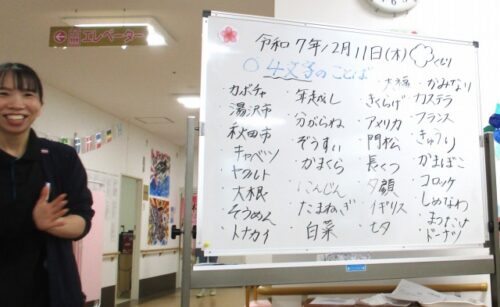 エレベーター
令和7年12月11日(木) くもり
4文字のことば
大福 かみなり
カボチャ 年越し きくらげ カステラ
湯沢市 分がらね アメリカ フランス
秋田市 ぞうすい 門松 きゅうり
キャベツ かまくら 長ぐつ かまぼこ
ヤクルト にんじん 夕顔 コロッケ
大根 たまねぎ イギリス しめなわ
そうめん 白菜 七夕 まつたけ
トナカイ ドーナツ